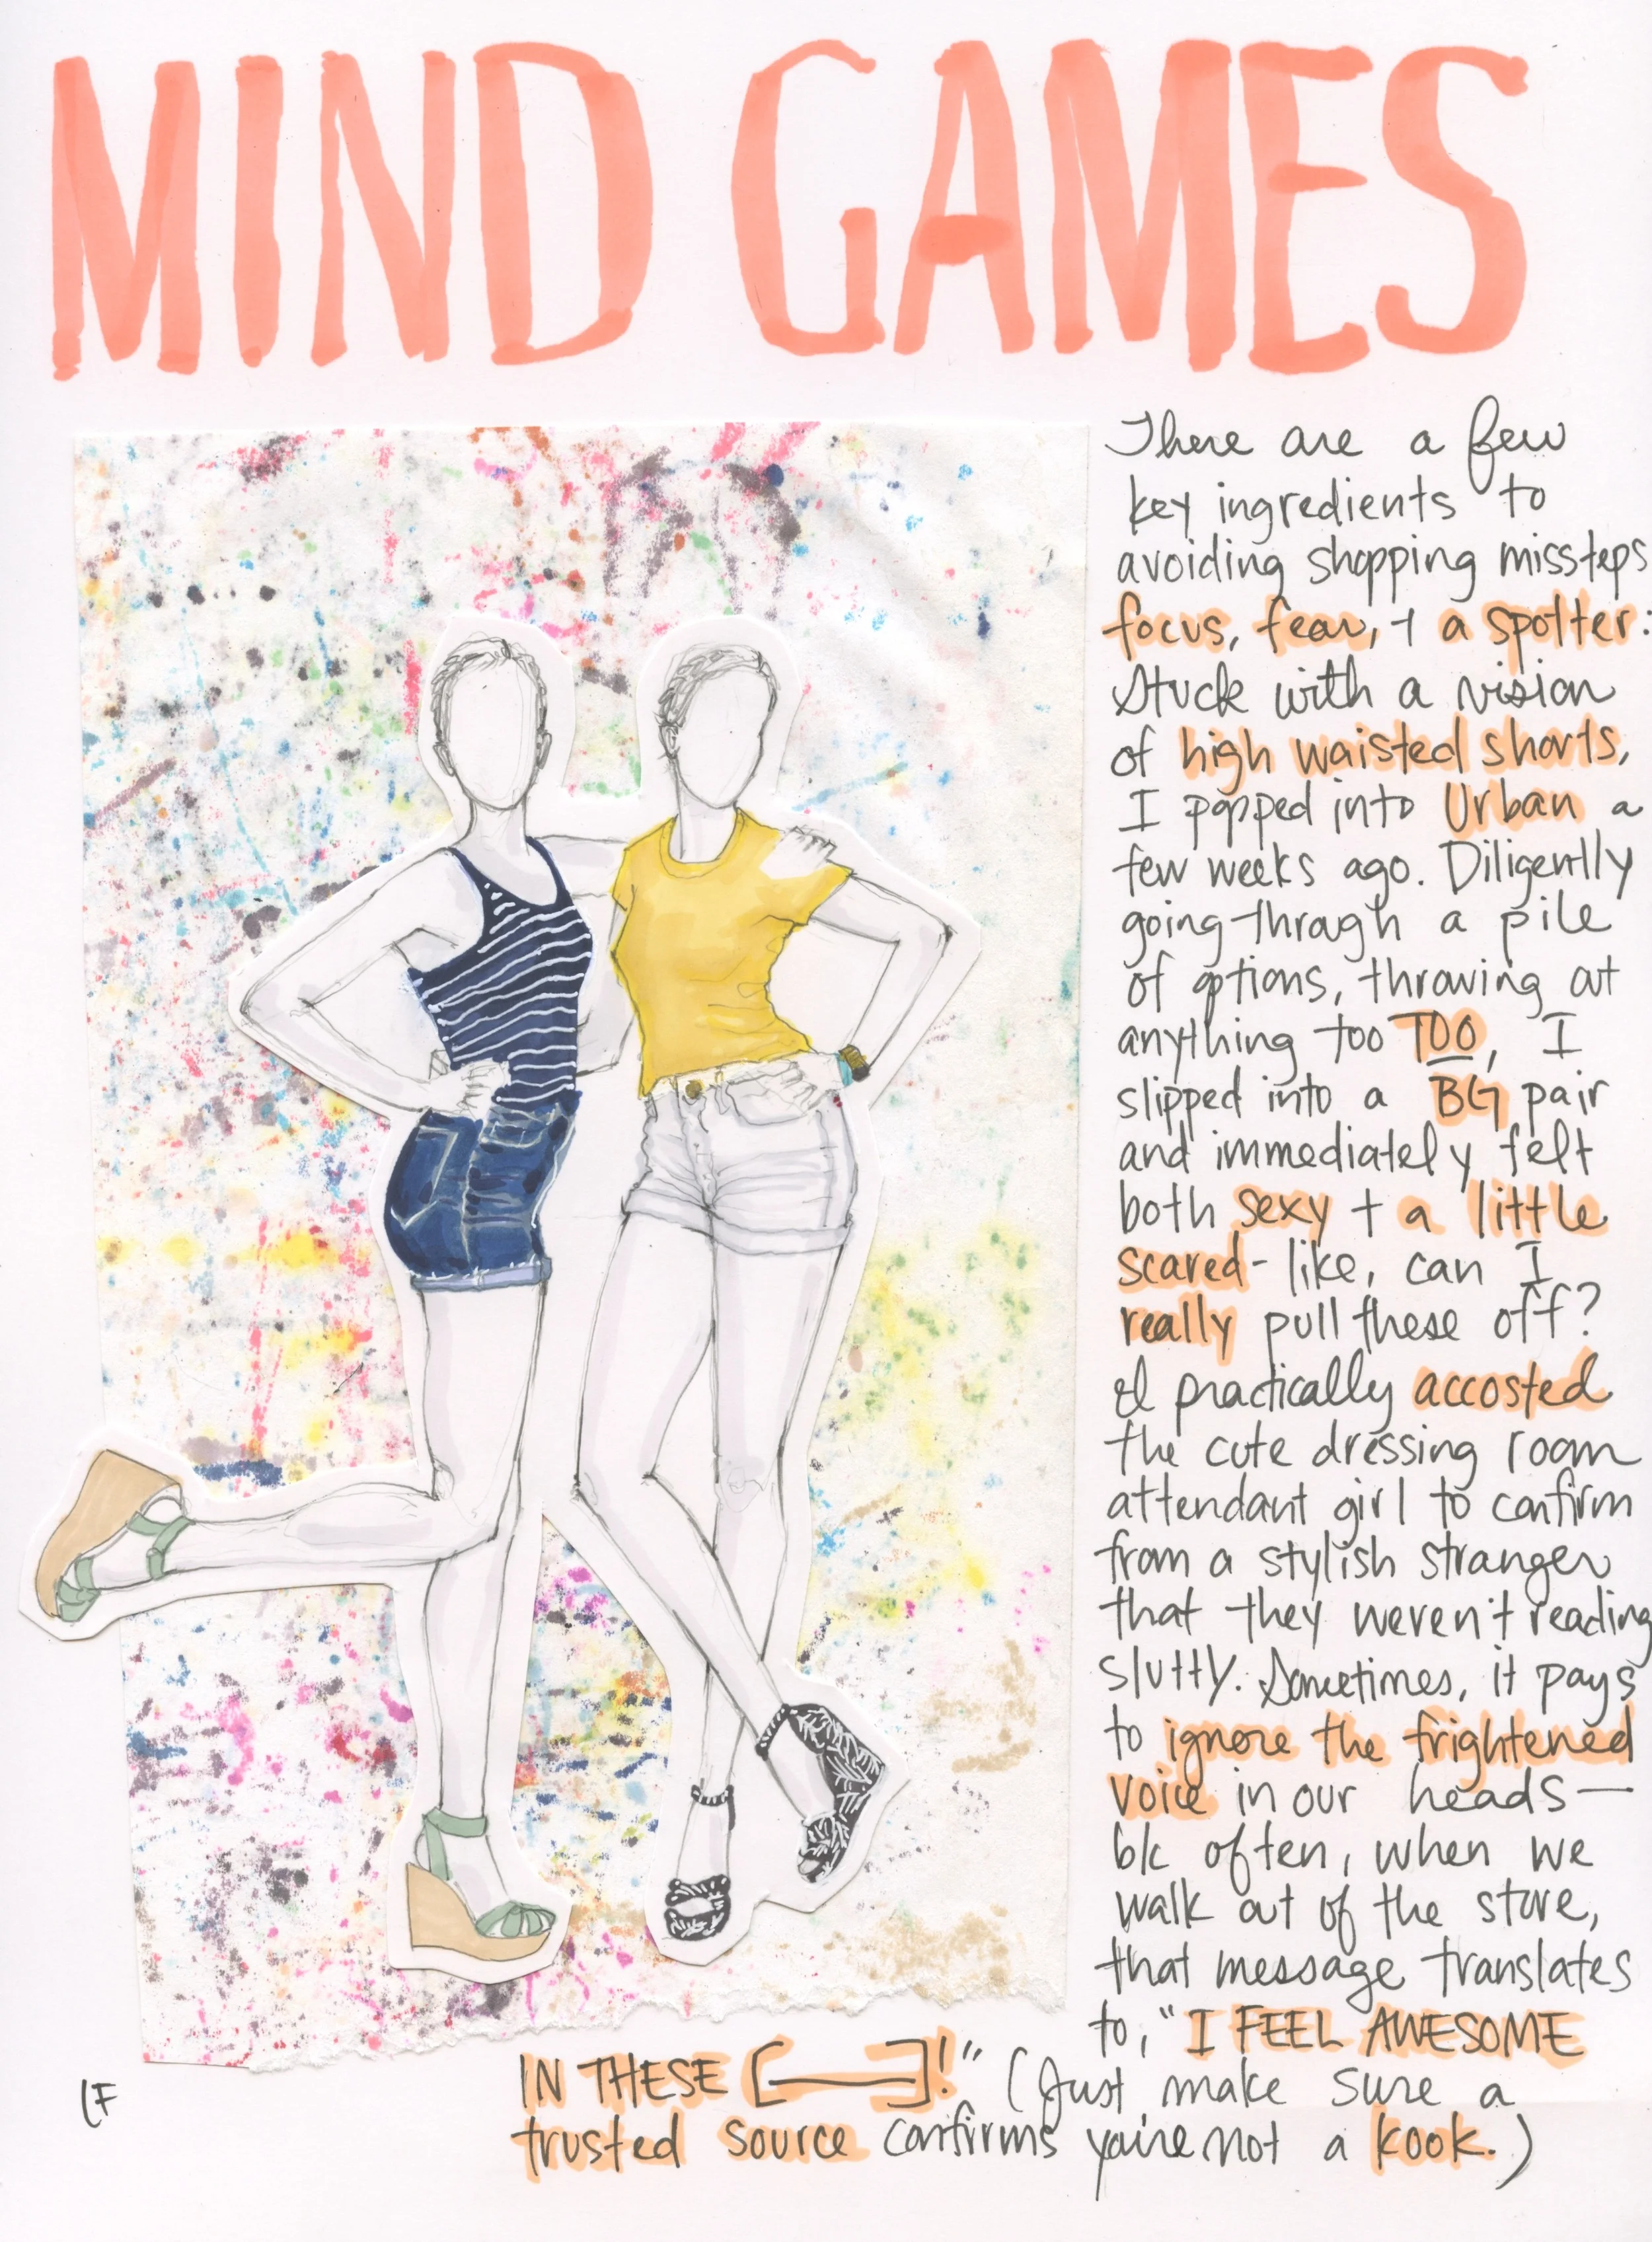 MIND GAMES
There are a few
key ingredients to
avoiding shopping missteps
focus, fear, + a spotter:
Stuck with a vision
of high waisted shorts,
I popped into Urban a
few weeks ago. Diligently
going through a pile
of options, throwing out
anything too TOO, I
slipped into a BG pair
and immediately felt
both sexy + a little
scared- like, can I
really pull these off?
I practically accosted
the cute dressing room
attendant girl to confirm
from a stylish stranger
that they weren't reading
slutty. Sometimes, it pays
to ignore the frightened
voice in our heads—
b/c often, when we
walk out of the store,
that message translates
to, "I FEEL AWESOME
IN THESE [———]!" (Just make sure a
trusted source confirms you're not a kook.)
LF